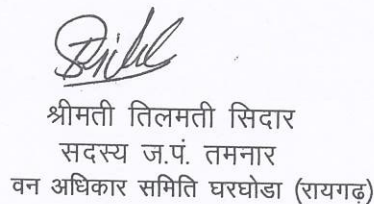 श्रीमती तिलमती सिदार
सदस्य ज.पं. तमनार
वन अधिकार समिति घरघोडा (रायगढ़)